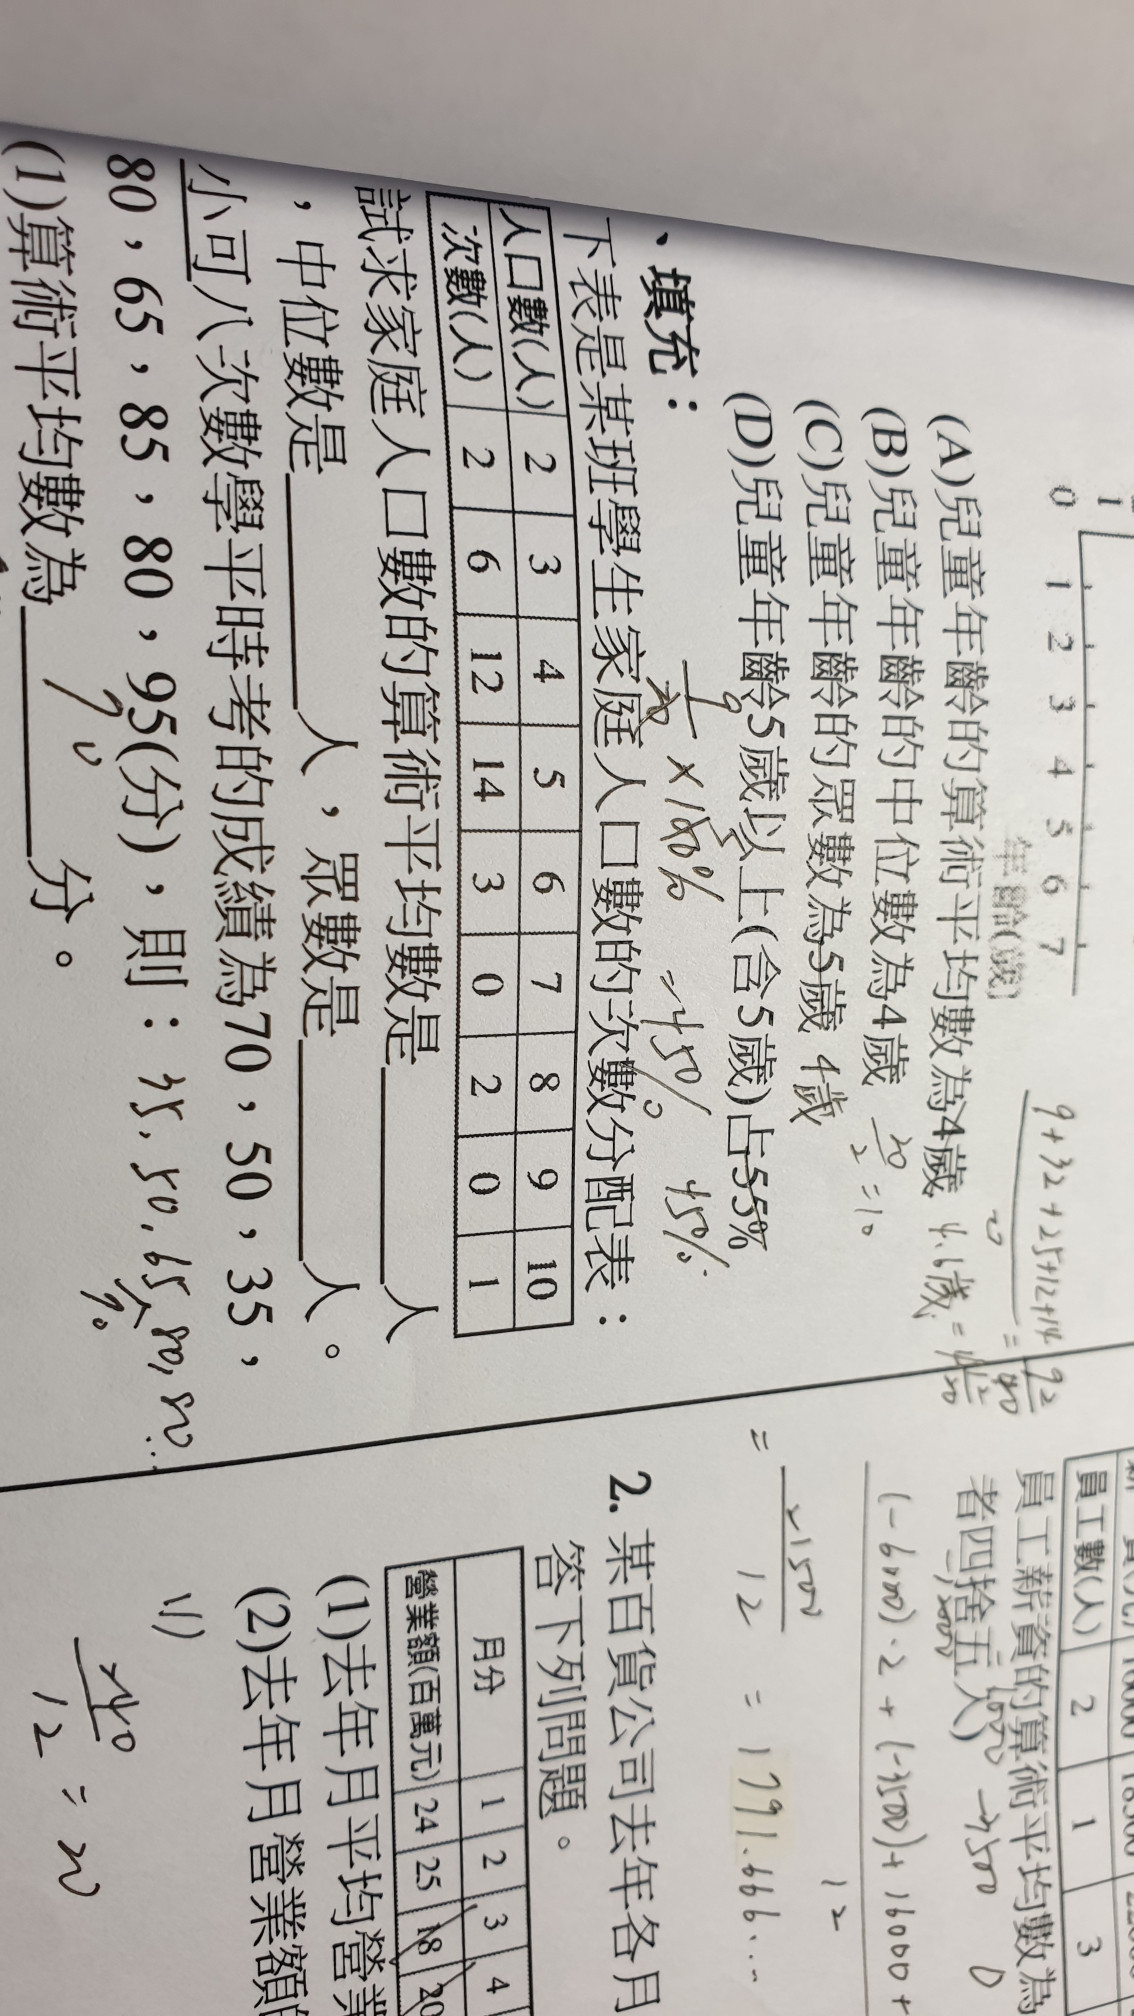 1
0 1 2 3 4 5 6 7
年齡(歲)
9+32+25+12+14
(A)兒童年齡的算術平均數為4歲 4.6歲
(B)兒童年齡的中位數為4歲 20/2 =10
(C)兒童年齡的眾數為5歲 4歲
(D)兒童年齡5歲以上(含5歲)占55% 45%
9/20 ×100% =45%
、填充:
下表是某班學生家庭人口數的次數分配表:
人口數(人) 2 3 4 5 6 7 8 9 10
次數(人) 2 6 12 14 3 0 2 0 1
試求家庭人口數的算術平均數是 人
,中位數是 人,眾數是 人。
小可八次數學平時考的成績為70,50,35,
80,65,85,80,95(分),則: 35.50.65 80,80...
(1)算術平均數為 70 分。
員工數(人) 2 1 3
員工薪資的算術平均數為
者四捨五入)
(-6000)·2+(-3500)+16000+
12
= 21500/12 = 1791.666...
2.某百貨公司去年各月
答下列問題。
月分 1 2 3 4
營業額(百萬元) 24 25 18 20
(1)去年月平均營業
(2)去年月營業額
240/12 = 20